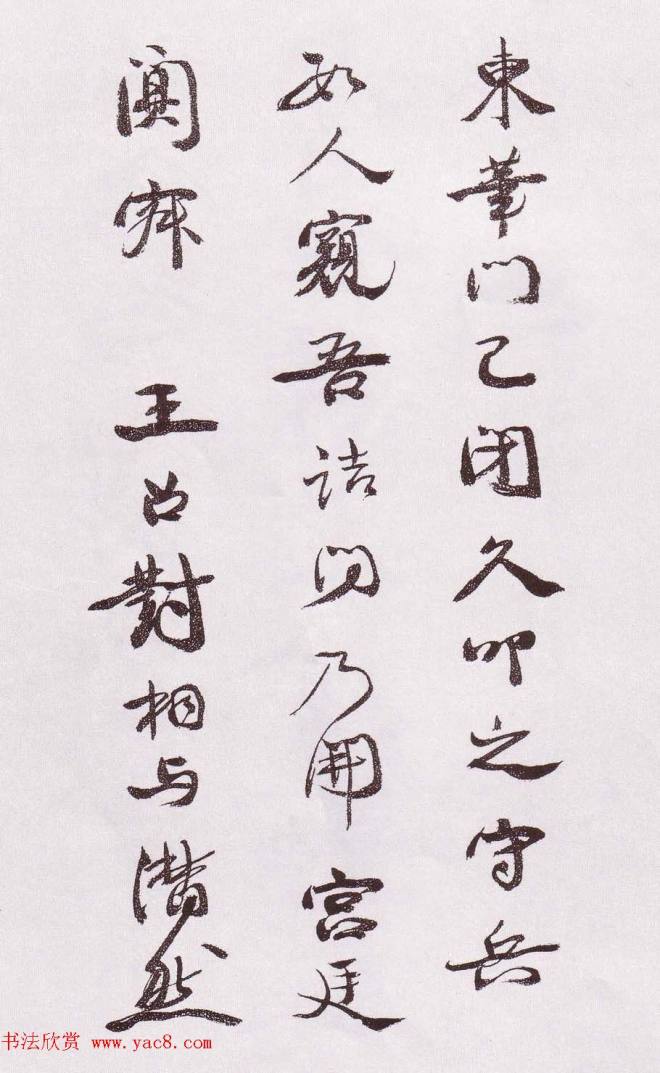 東華門已閉久叩之守兵
人窺吾詰問乃開宮廷
闃寂 王召對相与潸然
书法欣赏 www.yac8.com